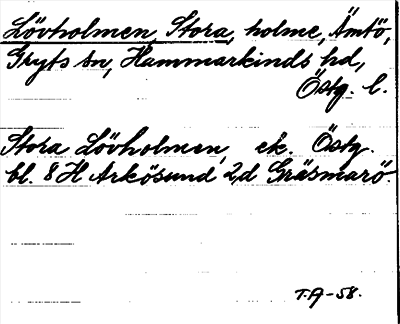 Lövholmen, Stora, holme, Ämtö,
Gryts sn, Hammarkinds hd,
Östg. l.
Stora Lövholmen, ek. Östg.
bl. 8 H Arkösund 2,d Gräsmarö.
T.A-58.